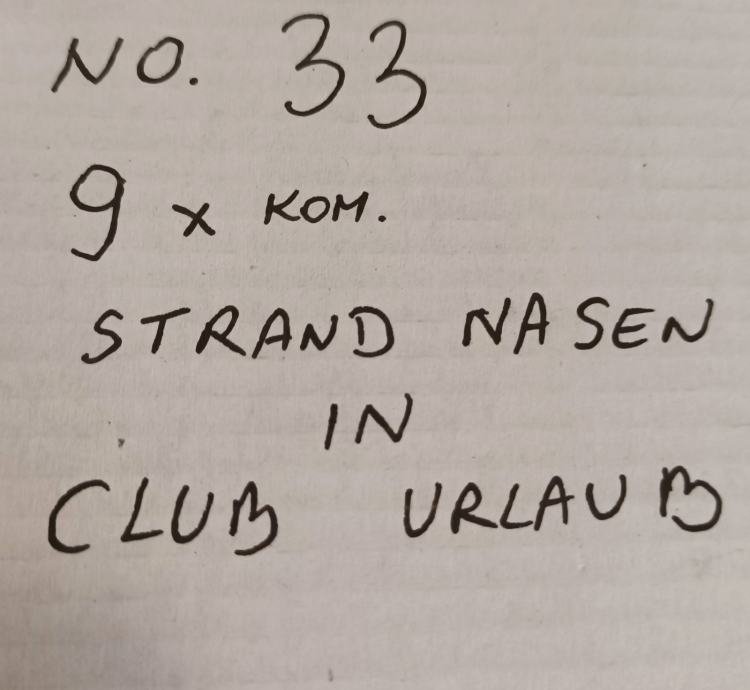 NO. 33
9 x KOM.
STRAND NASEN
IN
CLUB URLAUB